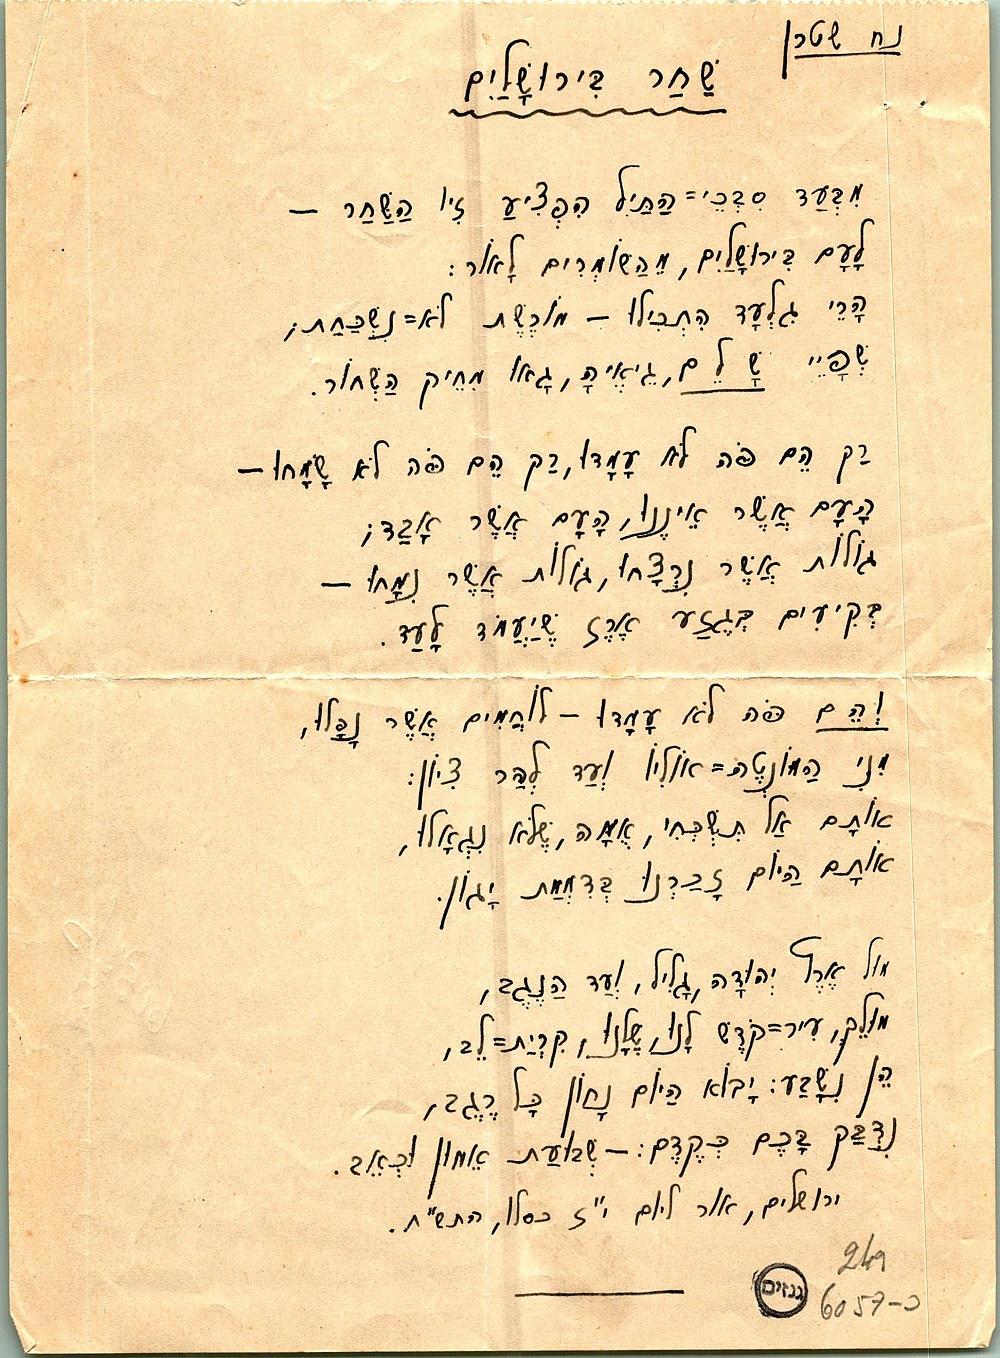 נח שטרן
שַׁחַר בִּירוּשָׁלַיִם
מִבְּעַד סִבְכֵי=הַתַּיִל הִפְצִיעַ זִיו הַשַּׁחַר –
לָעָם בִּירוּשָׁלַיִם, מֵהַשּׁוֹמְרִים לָאוֹר:
הָרֵי גִלְעָד הִתְכִילוּ – מוֹרֶשֶׁת לֹא=נִשְׁכַּחַת;
שְׁפָיֵי שָׁ לֵ ם, גֵּיאֶיהָ, גָּאוּ מִחֵיק הַשְּׁחוֹר.
רַק הֵם פֹּה לֹא עָמָדוּ, רַק הֵם פֹּה לֹא שָׂמָחוּ –
הָעָם אֲשֶׁר אֵינֶנּוּ, הָעָם אֲשֶׁר אָבַד;
גּוֹלוֹת אֲשֶׁר נִרְצָחוּ, גּוֹלוֹת אֲשֶׁר נִמָּחוּ –
בְּקִיעִים בְּגֶזַע אֶרֶז שֶׁיַּעֲמֹד לָעַד.
וְהֵ ם פֹּה לֹא עָמָדוּ – לוֹחֲמִים אֲשֶׁר נָפָלוּ,
מִנִּי הַמּוֹנְטֶה=אוֹלִיוֹ וְעַד לְהַר צִיּוֹן:
אוֹתָם אַל תִּשְׁכְּחִי, אֻמָּה, שֶׁלֹּא נִגְאָלוּ,
אוֹתָם הַיּוֹם זָכַרְנוּ בְּדִמְמַת יָגוֹן.
מוּל אֶרֶץ יְהוּדָה, גָּלִיל, וְעַד הַנֶּגֶב,
מוּלֵךְ, עִיר=קֹדֶשׁ לָנוּ, שֶׁלָּנוּ, קִרְיַת=לֵב,
הֵן נִשָּׁבַע: יָבוֹא הַיּוֹם נָחוֹן כָּל רֶגֶב,
נִדְבַּק בָּכֶם כְּקֶדֶם: – שְׁבוּעַת אֵמוּן וּכְאֵב.
ירושלים, אור ליום י"ז כסלו, התש"ח.
249
גנזים
6057-כ